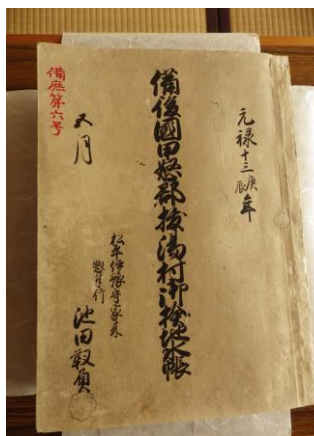 元禄十三庚辰年
備後國甲怒郡抜湯村御検地水帳
松平伊豫守家来
惣奉行
池田靱負
五月
備庶第六号